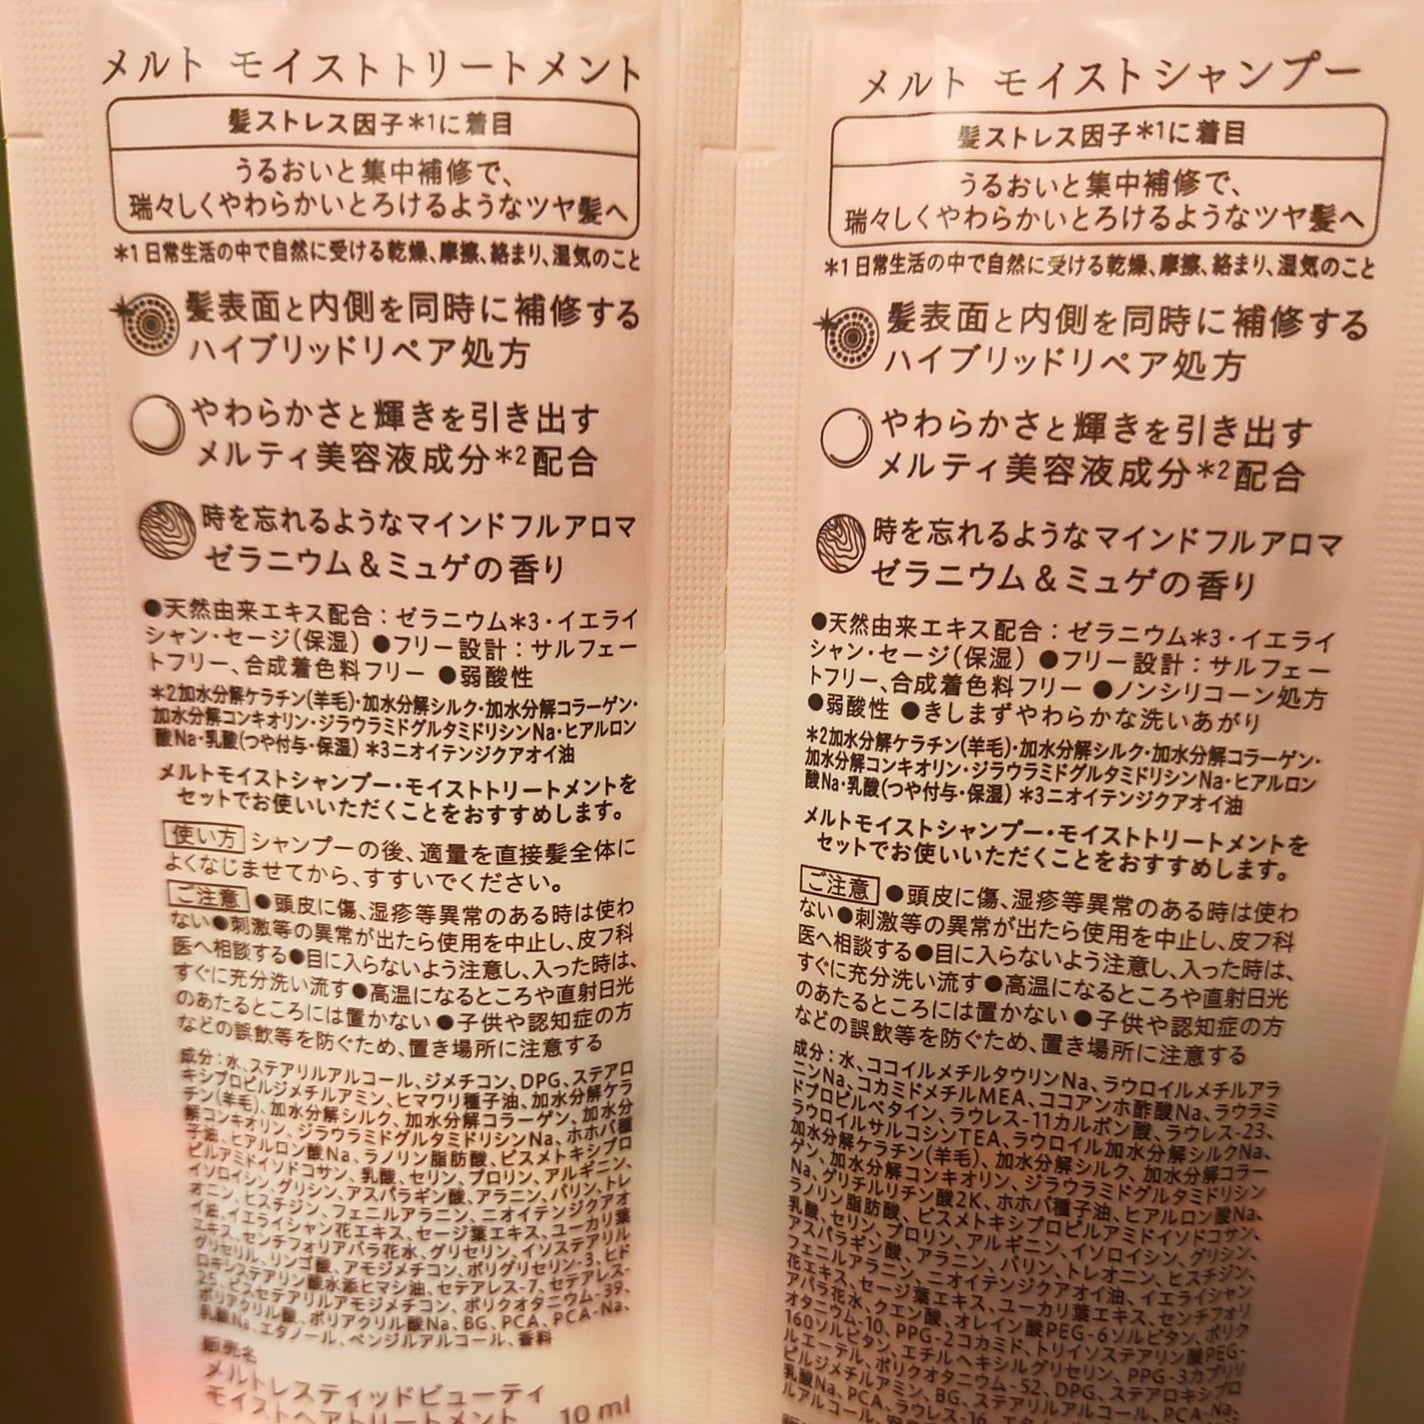 メルト モイストトリートメント
髪ストレス因子*1に着目
うるおいと集中補修で、
瑞々しくやわらかいとろけるようなツヤ髪へ
*1 日常生活の中で自然に受ける乾燥、摩擦、絡まり、湿気のこと
髪表面と内側を同時に補修する
ハイブリッドリペア処方
やわらかさと輝きを引き出す
メルティ美容液成分*2配合
時を忘れるようなマインドフルアロマ
ゼラニウム&ミュゲの香り
●天然由来エキス配合：ゼラニウム*3・イエライ
シャン・セージ(保湿) ●フリー設計：サルフェー
トフリー、合成着色料フリー ●弱酸性
*2加水分解ケラチン(羊毛)・加水分解シルク・加水分解コラーゲン・
加水分解コンキオリン・ジラウラミドグルタミドリシンNa・ヒアルロン
酸Na・乳酸(つや付与・保湿) *3ニオイテンジクアオイ油
メルトモイストシャンプー・モイストトリートメントを
セットでお使いいただくことをおすすめします。
使い方 シャンプーの後、適量を直接髪全体に
よくなじませてから、すすいでください。
ご注意 ●頭皮に傷、湿疹等異常のある時は使わ
ない●刺激等の異常が出たら使用を中止し、皮フ科
医へ相談する●目に入らないよう注意し、入った時は、
すぐに充分洗い流す●高温になるところや直射日光
のあたるところには置かない ●子供や認知症の方
などの誤飲等を防ぐため、置き場所に注意する
成分：水、ステアリルアルコール、ジメチコン、DPG、ステアロ
キシプロピルジメチルアミン、ヒマワリ種子油、加水分解ケラ
チン(羊毛)、加水分解シルク、加水分解コラーゲン、加水分
解コンキオリン、ジラウラミドグルタミドリシンNa、ホホバ種
子油、ヒアルロン酸Na、ラノリン脂肪酸、ビスメトキシプロ
ピルアミドイソドコサン、乳酸、セリン、プロリン、アルギニン、
イソロイシン、グリシン、アスパラギン酸、アラニン、バリン、トレ
オニン、ヒスチジン、フェニルアラニン、ニオイテンジクアオ
イ油、イエライシャン花エキス、セージ葉エキス、ユーカリ葉
エキス、センチフォリアバラ花水、グリセリン、イソステアリル
グリセリル、リンゴ酸、アモジメチコン、ポリグリセリン-3、ヒド
ロキシステアリン酸水添ヒマシ油、セテアレス-7、セテアレス-
25、ビスセテアリルアモジメチコン、ポリクオタニウム-39、
ポリアクリル酸、ポリアクリル酸Na、BG、PCA、PCA-Na、
乳酸Na、エタノール、ベンジルアルコール、香料
販売名
メルトレスティッドビューティ
モイストヘアトリートメント 10 ml
メルト モイストシャンプー
髪ストレス因子*1に着目
うるおいと集中補修で、
瑞々しくやわらかいとろけるようなツヤ髪へ
*1 日常生活の中で自然に受ける乾燥、摩擦、絡まり、湿気のこと
髪表面と内側を同時に補修する
ハイブリッドリペア処方
やわらかさと輝きを引き出す
メルティ美容液成分*2配合
時を忘れるようなマインドフルアロマ
ゼラニウム&ミュゲの香り
●天然由来エキス配合：ゼラニウム*3・イエライ
シャン・セージ(保湿) ●フリー設計：サルフェー
トフリー、合成着色料フリー ●ノンシリコーン処方
●弱酸性 ●きしまずやわらかな洗いあがり
*2加水分解ケラチン(羊毛)・加水分解シルク・加水分解コラーゲン・
加水分解コンキオリン・ジラウラミドグルタミドリシンNa・ヒアルロン
酸Na・乳酸(つや付与・保湿) *3ニオイテンジクアオイ油
メルトモイストシャンプー・モイストトリートメントを
セットでお使いいただくことをおすすめします。
ご注意 ●頭皮に傷、湿疹等異常のある時は使わ
ない●刺激等の異常が出たら使用を中止し、皮フ科
医へ相談する●目に入らないよう注意し、入った時は、
すぐに充分洗い流す●高温になるところや直射日光
のあたるところには置かない ●子供や認知症の方
などの誤飲等を防ぐため、置き場所に注意する
成分：水、ココイルメチルタウリンNa、ラウロイルメチルアラ
ニンNa、コカミドメチルMEA、ココアンホ酢酸Na、ラウラミ
ドプロピルベタイン、ラウレス-11カルボン酸、ラウレス-23、
ラウロイルサルコシンTEA、ラウロイル加水分解シルクNa、
加水分解ケラチン(羊毛)、加水分解シルク、加水分解コラー
ゲン、加水分解コンキオリン、ジラウラミドグルタミドリシン
Na、グリチルリチン酸2K、ホホバ種子油、ヒアルロン酸Na、
ラノリン脂肪酸、ビスメトキシプロピルアミドイソドコサン、
乳酸、セリン、プロリン、アルギニン、イソロイシン、グリシン、
アスパラギン酸、アラニン、バリン、トレオニン、ヒスチジン、
フェニルアラニン、ニオイテンジクアオイ油、イエライシャン
花エキス、セージ葉エキス、ユーカリ葉エキス、センチフォリ
アバラ花水、クエン酸、オレイン酸PEG-6ソルビタン、ポリク
オタニウム-10、PPG-2コカミド、トリイソステアリン酸PEG-
160ソルビタン、エチルヘキシルグリセリン、PPG-3カプリリ
ルエーテル、ポリクオタニウム-52、DPG、ステアロキシプロ
ピルジメチルアミン、BG、ステアリルアルコール、PCA-Na、
乳酸Na、PCA、ラウレス-16、
ルアルコール、